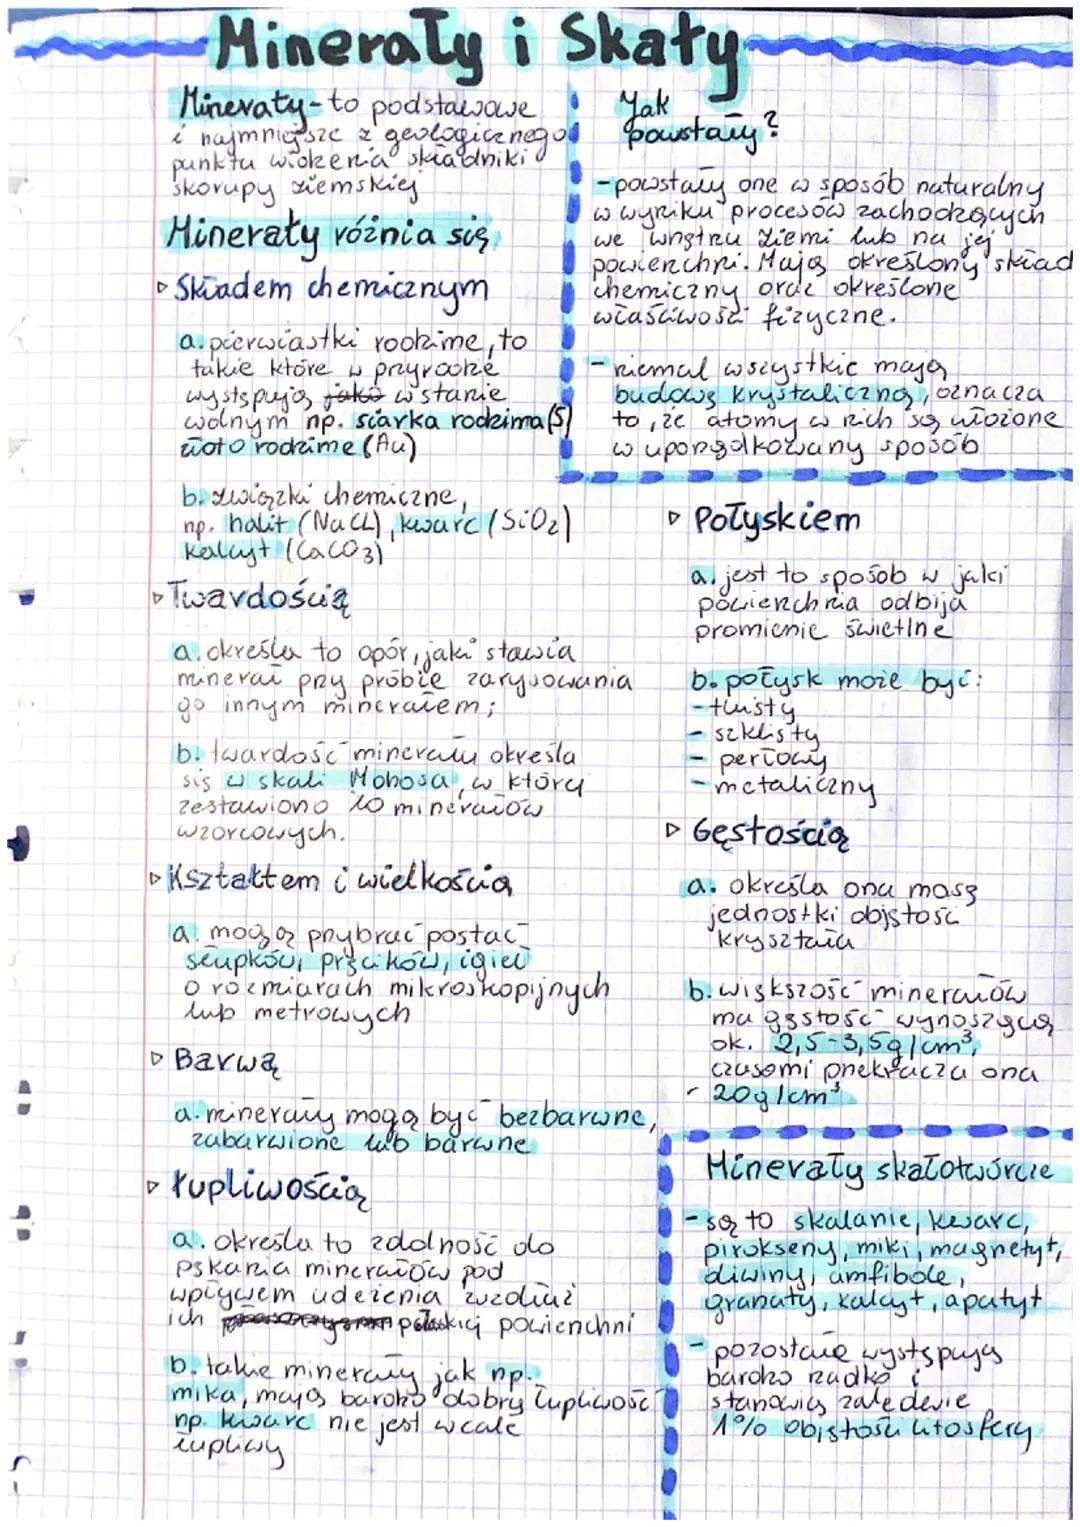 Minerały i Skały
Minerały - to podstawowe
i najmniejsze z geologicznego
punktu widzenia składniki
skorupy ziemskiej
Minerały różnia się
▷ Składem chemicznym
a. pierwiastki rodzime, to
takie które w przyrodzie
występują jako w stanie
wolnym np. siarka rodzima (S)
złoto rodzime (Au)
b. związki chemiczne,
np. halit (NaCl), kwarc (SiO2)
kalcyt (CaCO3)
▷ Twardością
a. określa to opór, jaki stawia
minerał przy próbie zarysowania
go innym minerałem;
b. twardość minerału określa
się w skali Mohosa, w której
zestawiono 10 minerałów
wzorcowych.
▷ Kształtem i wielkością
a. mogą przybrać postać
słupków, pręcików, igieł
o rozmiarach mikroskopijnych
lub metrowych
▷ Barwą
a. minerały mogą być bezbarwne,
zabarwione lub barwne
▷ Łupliwością
a. określa to zdolność do
pękania minerałów pod
wpływem uderzenia wzdłuż
ich płaskiej powierzchni
b. takie minerały jak np.
mika, mają bardzo dobrą łupliwość
np. kwarc nie jest wcale
łupliwy
Jak
powstały?
- powstały one w sposób naturalny
w wyniku procesów zachodzących
we wnętrzu Ziemi lub na jej
powierzchni. Mają określony skład
chemiczny oraz określone
właściwości fizyczne.
- niemal wszystkie mają
budowę krystaliczną, oznacza
to, że atomy w nich są ułożone
w uporządkowany sposób
▷ Połyskiem
a. jest to sposób w jaki
powierzchnia odbija
promienie świetlne
b. połysk może być:
- tłusty
- szklisty
- perłowy
- metaliczny
▷ Gęstością
a. określa ona masę
jednostki objętość
kryształa
b. większość minerałów
ma gęstość wynoszącą
ok. 2,5-3,5g/cm³,
czasami przekracza ona
- 20g/cm³
Minerały skałotwórcze
- są to skalanie, kwarc,
pirokseny, miki, magnetyt,
oliwiny, amfibole,
granaty, kalcyt, apatyt
- pozostałe występują
bardzo rzadko i
stanowią zaledwie
1% objętości litosfery